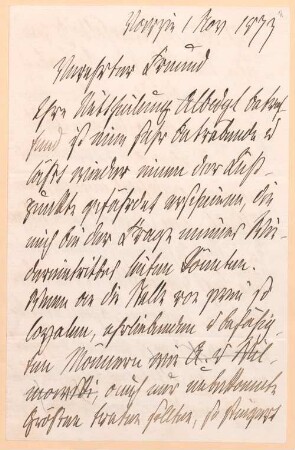 Varzin 1 Nov 1873
Verehrter Freund
Ihre Mittheilung Albedyll betref
fend ist eine sehr betrübende u
läßt wieder einen der
punkte gefährdet erscheinen, die
mich bei der Frage meines Wie
dereintrittes leiten könnten.
Wenn an die Stelle von zwei so
loyalen, ehrliebenden u befähig
ten Männern wie
auch nur unbekannte
Größen treten sollten, so steigert